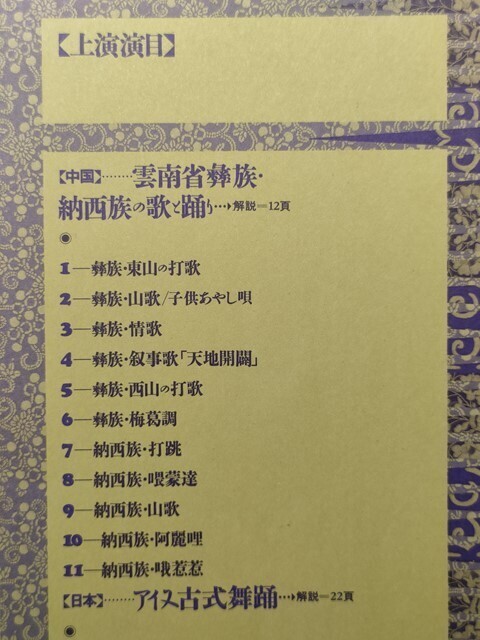 【上演演目】
【中国】……雲南省彝族・
納西族の歌と踊り…→解説=12頁
◉
1—彝族・東山の打歌
2—彝族・山歌/子供あやし唄
3—彝族・情歌
4—彝族・叙事歌「天地開闢」
5—彝族・西山の打歌
6—彝族・梅葛調
7—納西族・打跳
8—納西族・喂蒙達
9—納西族・山歌
10—納西族・阿麗哩
11—納西族・哦惹惹
【日本】……アイヌ古式舞踊…→解説=22頁
◉